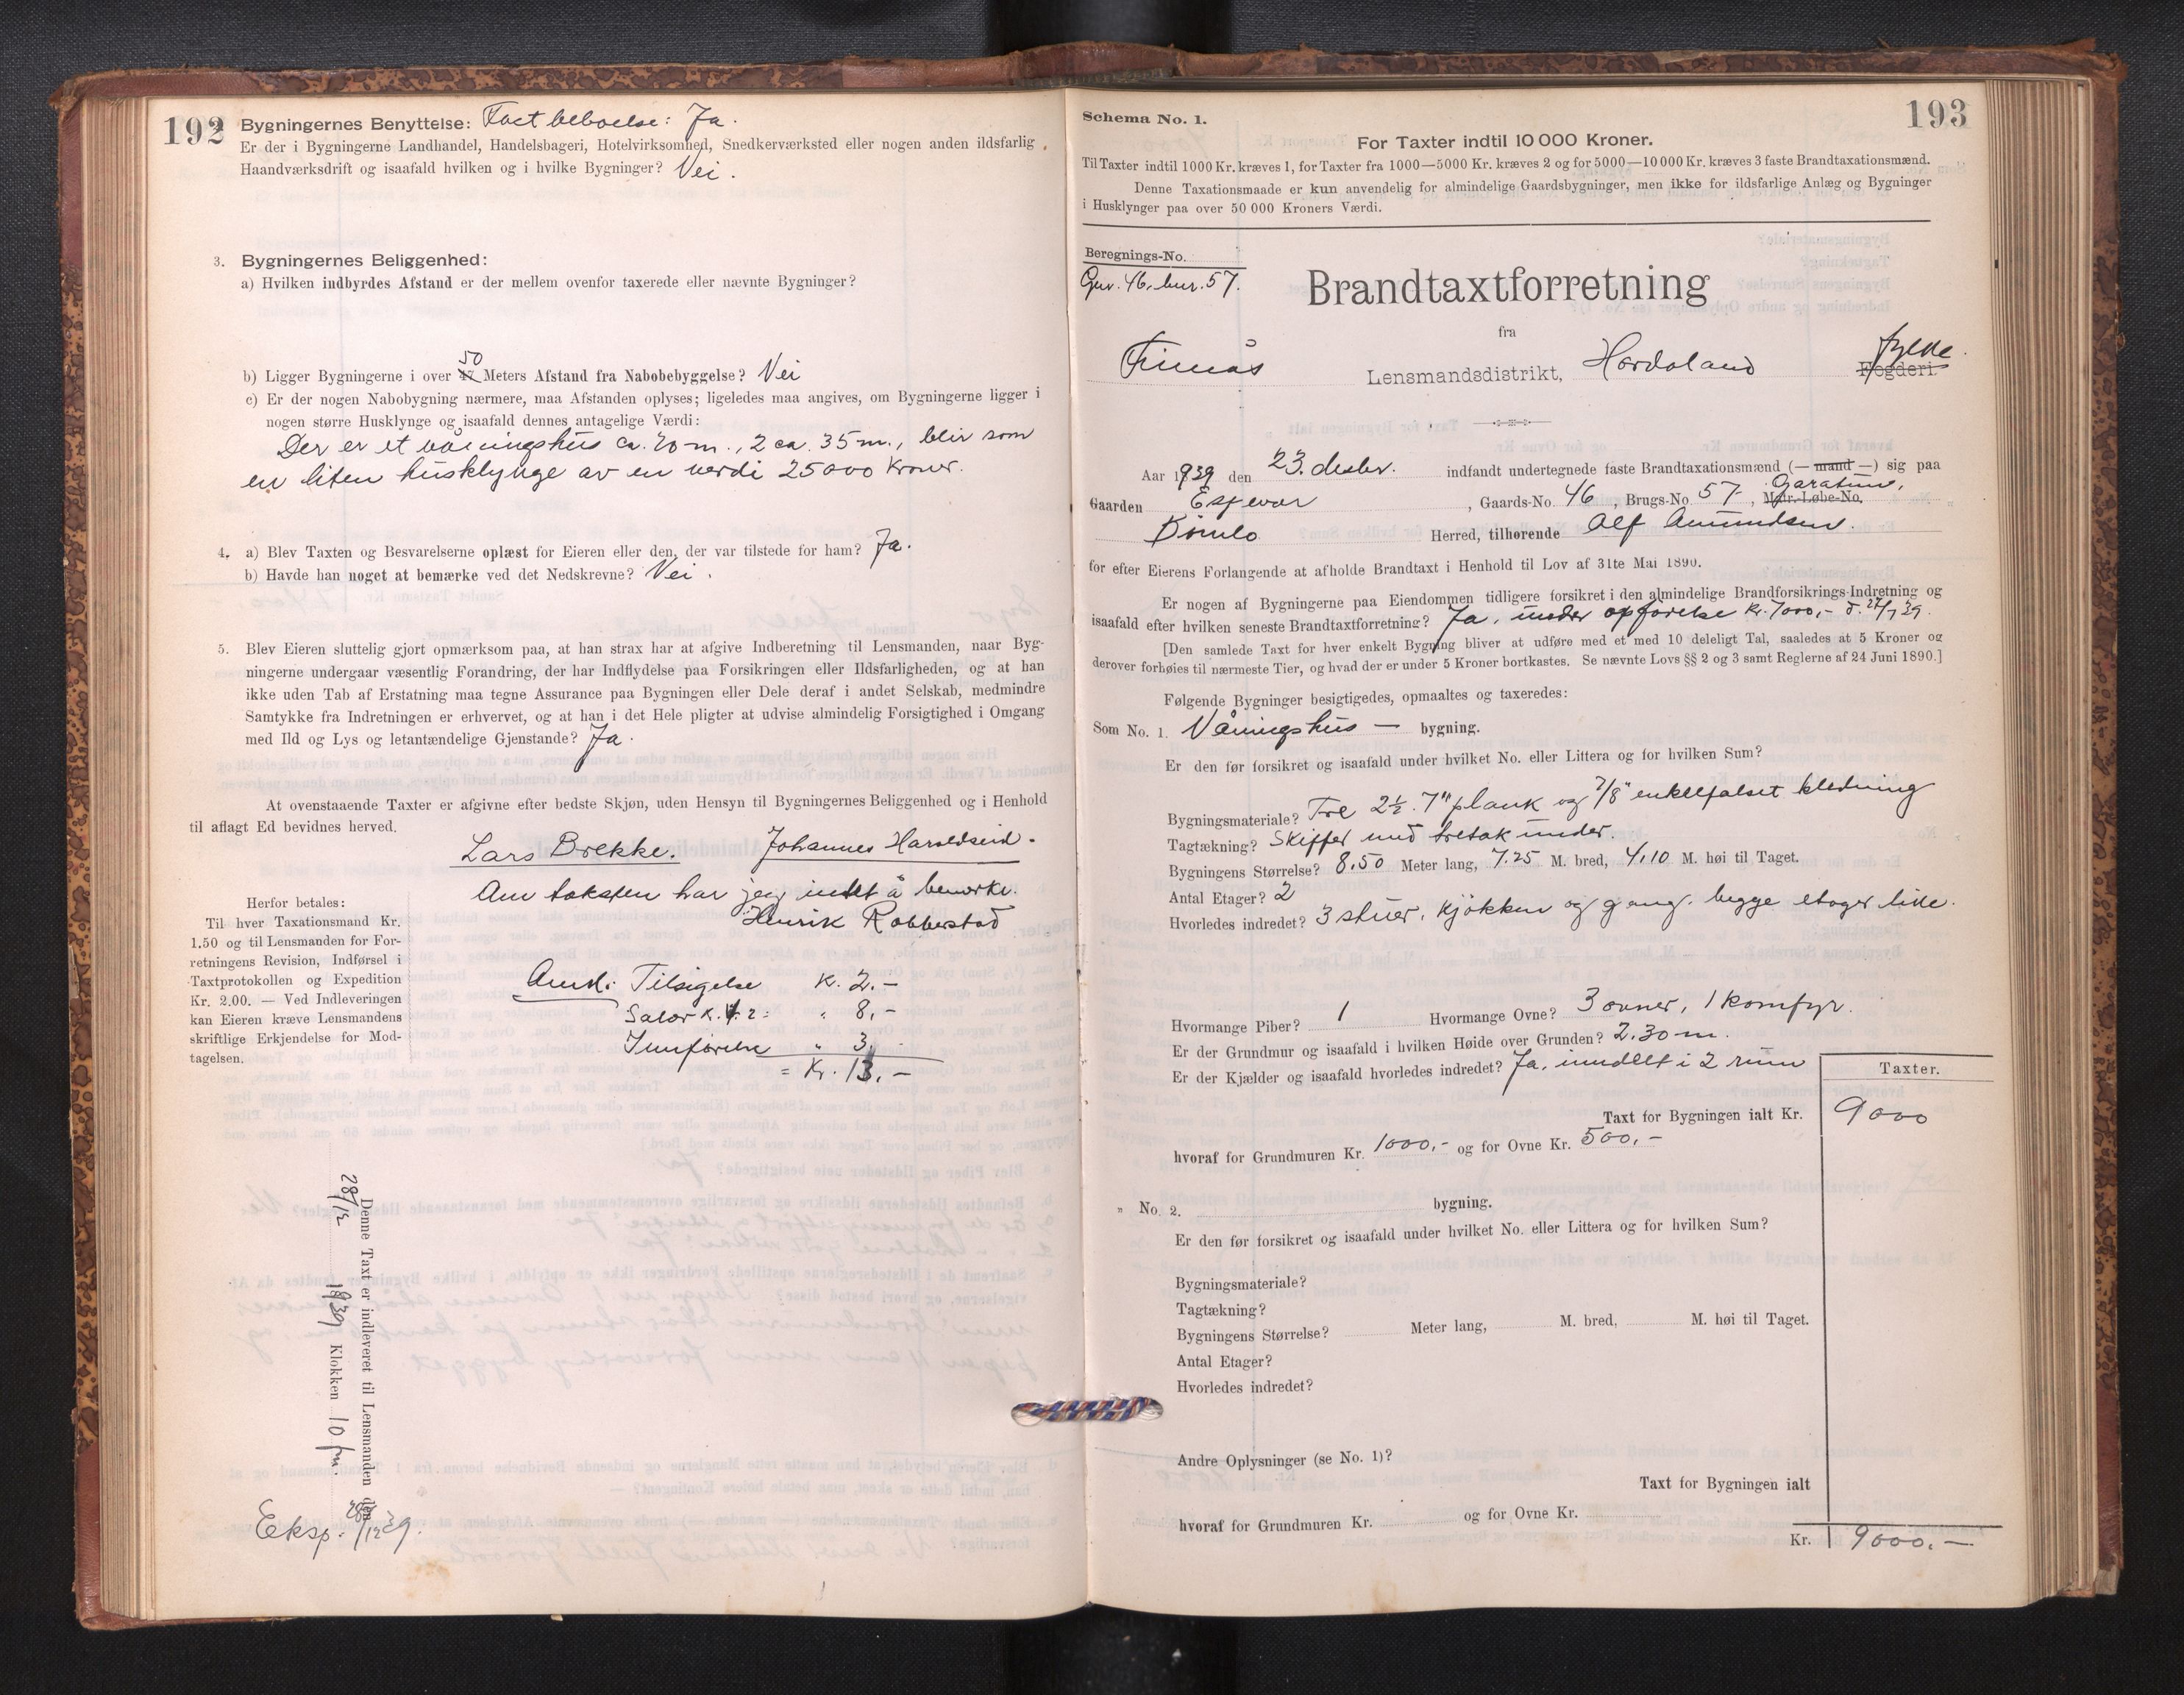 192
Bygningernes Benyttelse: Fast beboelse: Ja.
Er der i Bygningerne Landhandel, Handelsbageri, Hotelvirksomhed, Snedkerværksted eller nogen anden ildsfarlig
Haandværksdrift og isaafald hvilken og i hvilke Bygninger? Nei.
3. Bygningernes Beliggenhed:
a) Hvilken indbyrdes Afstand er der mellem ovenfor taxerede eller nævnte Bygninger?
50
b) Ligger Bygningerne i over Meters Afstand fra Nabobebyggelse? Nei
c) Er der nogen Nabobygning nærmere, maa Afstanden oplyses; ligeledes maa angives, om Bygningerne ligger i
nogen større Husklynge og isaafald dennes antagelige Værdi:
Der er et våningshus ca. 20 m., 2 ca. 35 m., blir som
en liten husklynge av en verdi 25000 Kroner.
4. a) Blev Taxten og Besvarelserne oplæst for Eieren eller den, der var tilstede for ham? Ja.
b) Havde han noget at bemærke ved det Nedskrevne? Nei.
5. Blev Eieren sluttelig gjort opmærksom paa, at han strax har at afgive Indberetning til Lensmanden, naar Byg-
ningerne undergaar væsentlig Forandring, der har Indflydelse paa Forsikringen eller Ildsfarligheden, og at han
ikke uden Tab af Erstatning maa tegne Assurance paa Bygningen eller Dele deraf i andet Selskab, medmindre
Samtykke fra Indretningen er erhvervet, og at han i det Hele pligter at udvise almindelig Forsigtighed i Omgang
med Ild og Lys og letantændelige Gjenstande? Ja.
At ovenstaaende Taxter er afgivne efter bedste Skjøn, uden Hensyn til Bygningernes Beliggenhed og i Henhold
til aflagt Ed bevidnes herved.
Lars Brekke. Johannes Haraldseid.
Om taksten har jeg intet å bemerke.
Henrik Robberstad
Herfor betales:
Til hver Taxationsmand Kr.
1.50 og til Lensmanden for For-
retningens Revision, Indførsel i
Taxtprotokollen og Expedition
Kr. 2.00. — Ved Indleveringen
kan Eieren kræve Lensmandens
skriftlige Erkjendelse for Mod-
tagelsen.
Anm: Tilsigelse Kr. 2.-
Salær K. 4. 2: " 8,-
Innførelse " 3,
= Kr. 13,-
Denne Taxt er indleveret til Lensmanden den
28/12 1939 Klokken 10 fm.
Eksp. 28/12 39.
193
Schema No. 1.
For Taxter indtil 10 000 Kroner.
Til Taxter indtil 1000 Kr. kræves 1, for Taxter fra 1000—5000 Kr. kræves 2 og for 5000—10 000 Kr. kræves 3 faste Brandtaxationsmænd.
Denne Taxationsmaade er kun anvendelig for almindelige Gaardsbygninger, men ikke for ildsfarlige Anlæg og Bygninger
i Husklynger paa over 50 000 Kroners Værdi.
Beregnings-No.
Gnr. 46, bnr. 57.
Brandtaxtforretning
fra
Finnås Lensmandsdistrikt, Hordaland fylke. Fogderi.
Aar 1939 den 23. desbr. indfandt undertegnede faste Brandtaxationsmænd (— mand —) sig paa
Gaarden Espevær, Gaards-No. 46, Brugs-No. 57, Matr.-Løbe-No.
Bømlo Herred, tilhørende Alf Amundsen.
for efter Eierens Forlangende at afholde Brandtaxt i Henhold til Lov af 31te Mai 1890.
Er nogen af Bygningerne paa Eiendommen tidligere forsikret i den almindelige Brandforsikrings-Indretning og
isaafald efter hvilken seneste Brandtaxtforretning? Ja, under opførelse Kr. 7000,- d. 27/7 39.
[Den samlede Taxt for hver enkelt Bygning bliver at udføre med et med 10 deleligt Tal, saaledes at 5 Kroner og
derover forhøies til nærmeste Tier, og hvad der er under 5 Kroner bortkastes. Se nævnte Lovs §§ 2 og 3 samt Reglerne af 24 Juni 1890.]
Følgende Bygninger besigtigedes, opmaaltes og taxeredes:
Som No. 1. Våningshus — bygning.
Er den før forsikret og isaafald under hvilket No. eller Littera og for hvilken Sum?
Bygningsmateriale? Tre 2½. 7" plank og 7/8" enkeltfalset kledning
Tagtækning? Skiffer med tretak under.
Bygningens Størrelse? 8,50 Meter lang, 7.25 M. bred, 4,10 M. høi til Taget.
Antal Etager? 2
Hvorledes indredet? 3 stuer, kjøkken og gang. begge etager like.
Hvormange Piber? 1 Hvormange Ovne? 3 ovner, 1 komfyr.
Er der Grundmur og isaafald i hvilken Høide over Grunden? 2.30 m.
Er der Kjælder og isaafald hvorledes indredet? Ja, inndelt i 2 rum
Taxter.
Taxt for Bygningen ialt Kr. 9000
hvoraf for Grundmuren Kr. 1000,- og for Ovne Kr. 500,-
" No. 2. bygning.
Er den før forsikret og isaafald under hvilket No. eller Littera og for hvilken Sum?
Bygningsmateriale?
Tagtækning?
Bygningens Størrelse? Meter lang, M. bred, M. høi til Taget.
Antal Etager?
Hvorledes indredet?
Andre Oplysninger (se No. 1)?
Taxt for Bygningen ialt
hvoraf for Grundmuren Kr. og for Ovne Kr.
Kr. 9000.-